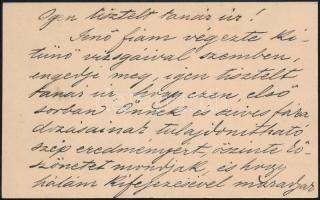 Igen tisztelt tanár úr!
Jenő fiam végezte ki-
tünő vizsgáival szemben,
engedje meg, igen tisztelt
tanár úr, hogy ezen, első
sorban Önnek és szives fára
dozásainak tulajdonitható
szép eredményért, őszinte kö
szönetet mondjak, és hogy
hálám kifejezésével maradjak